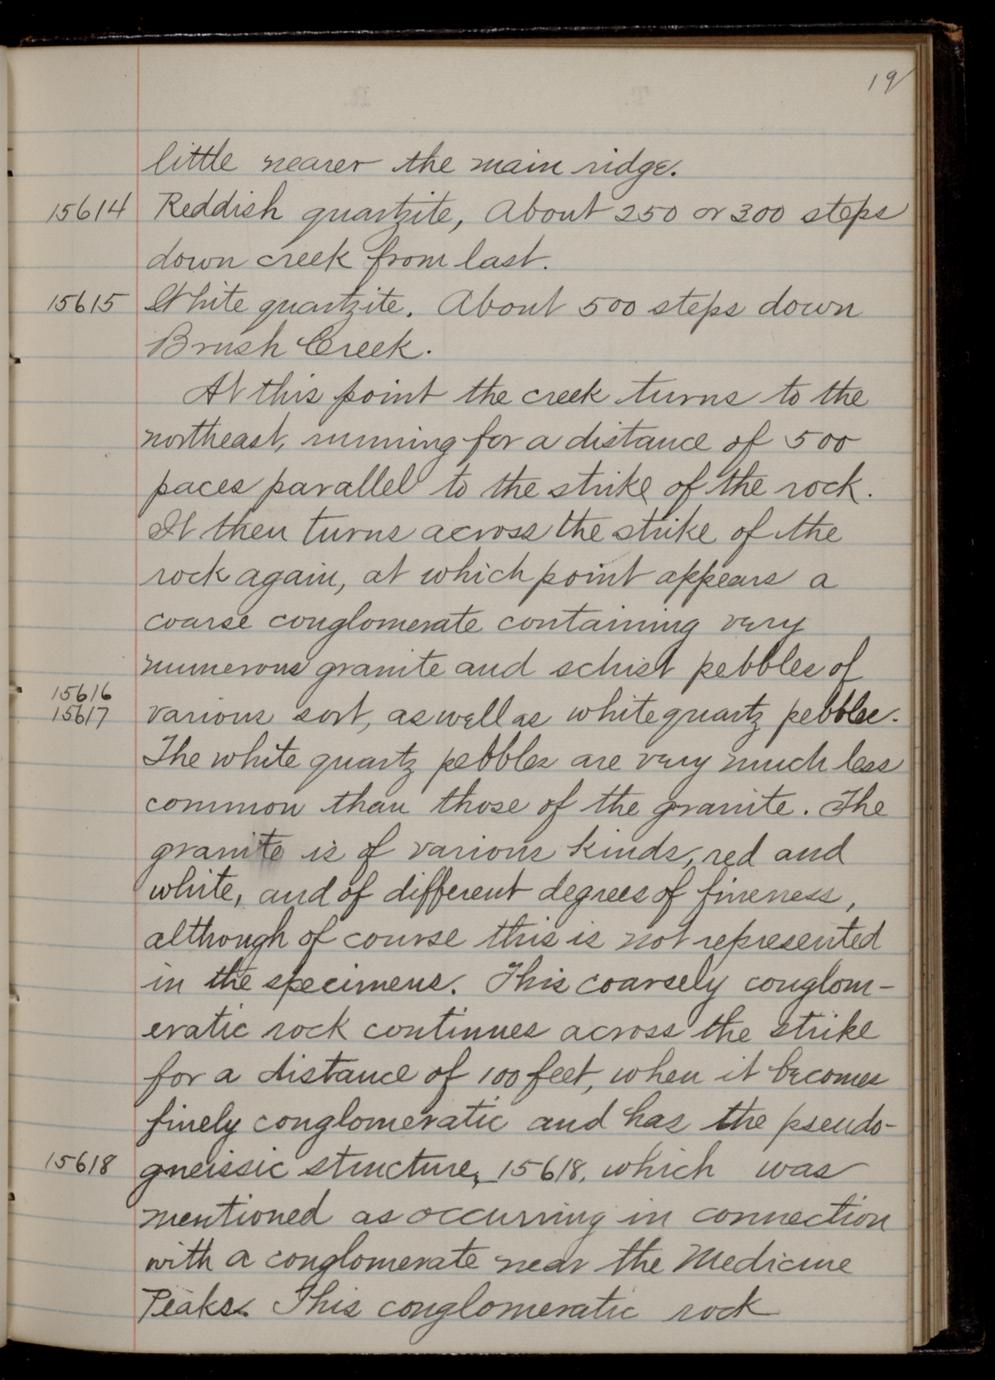 19
little nearer the main ridge.
15614 Reddish quartzite, About 250 or 300 steps
down creek from last.
15615 White quartzite. About 500 steps down
Brush Creek.
At this point the creek turns to the
northeast, running for a distance of 500
paces parallel to the strike of the rock.
It then turns across the strike of the
rock again, at which point appears a
coarse conglomerate containing very
numerous granite and schist pebbles of
15616
15617 various sort, as well as white quartz pebbles.
The white quartz pebbles are very much less
common than those of the granite. The
granite is of various kinds, red and
white, and of different degrees of fineness,
although of course this is not represented
in the specimens. This coarsely conglom-
eratic rock continues across the strike
for a distance of 100 feet, when it becomes
finely conglomeratic and has the pseudo-
15618 gneissic structure, 15618, which was
mentioned as occurring in connection
with a conglomerate near the Medicine
Peaks. This conglomeratic rock